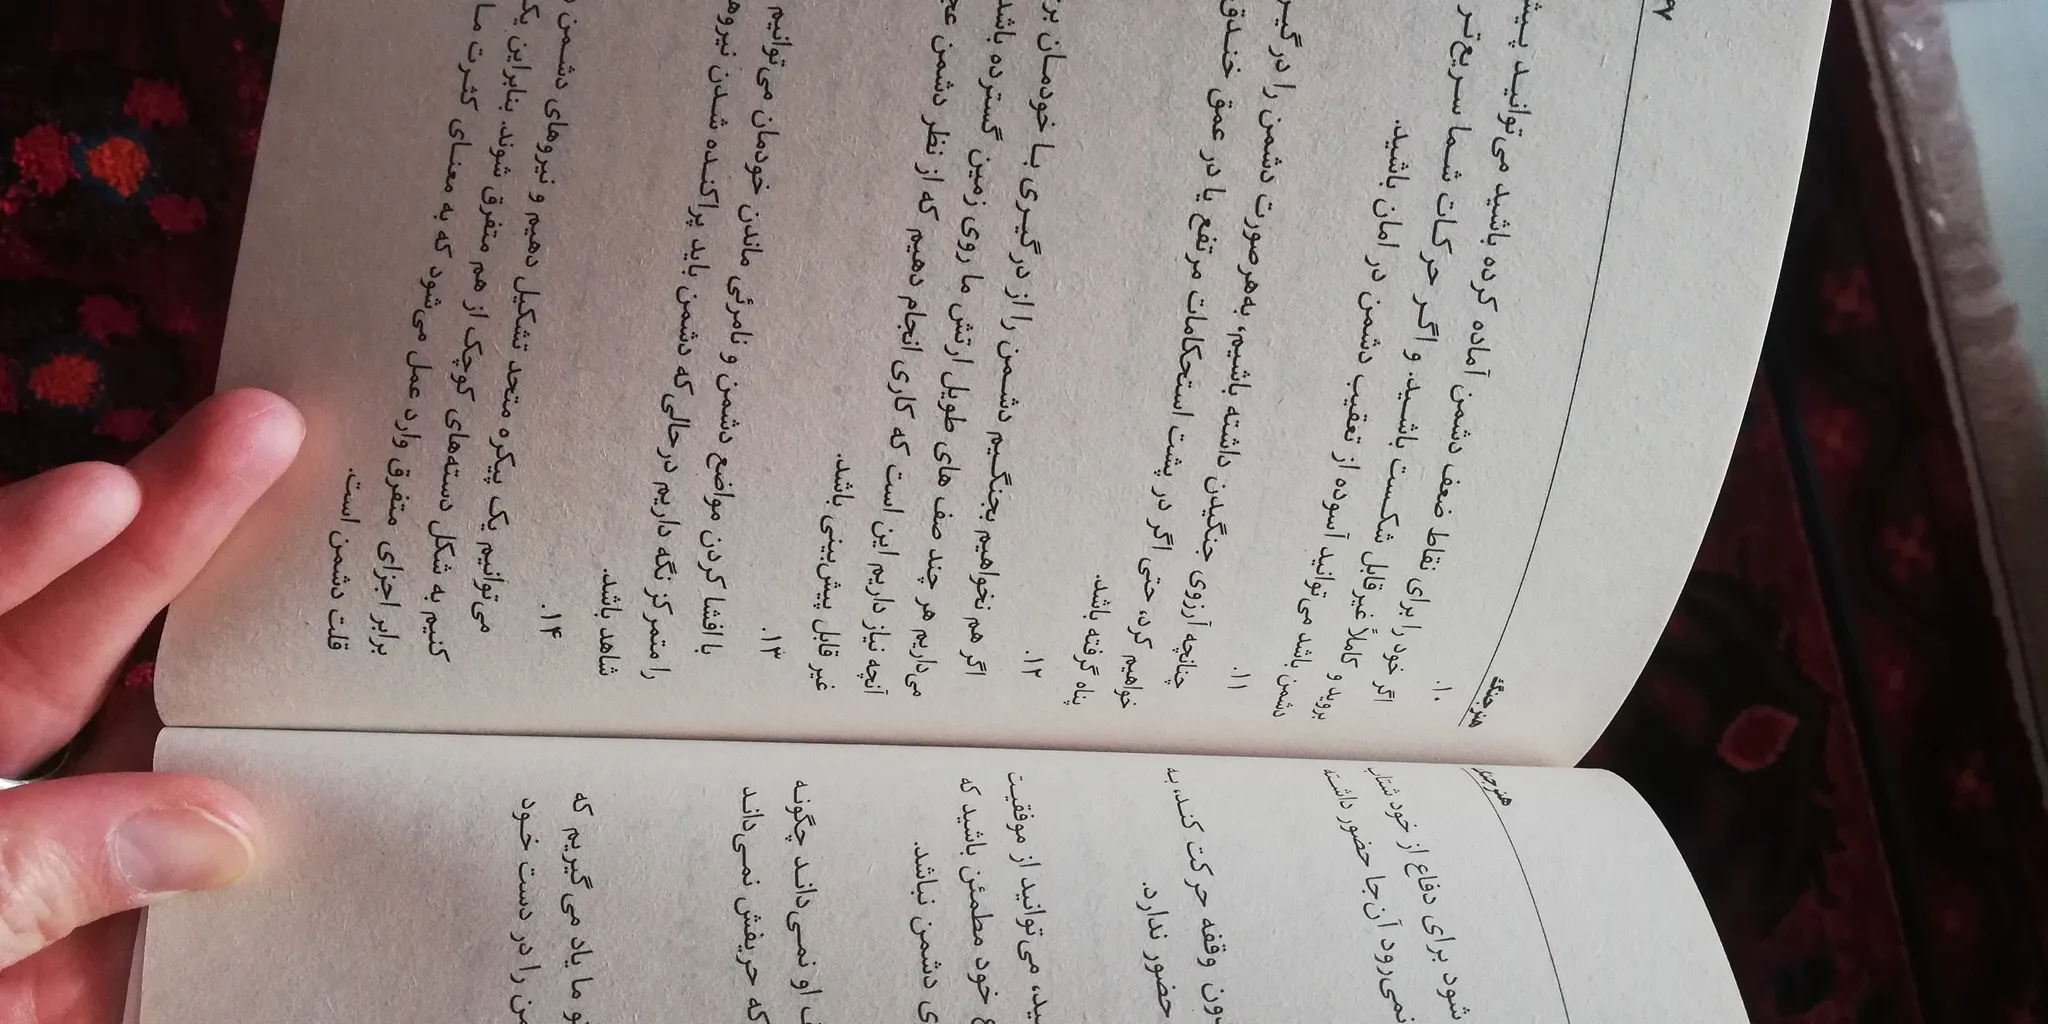 هنر جنگ
شود برای دفاع از خود شتاب
نمی‌رود آن جا حضور داشته
وقفه حرکت کند، به
حضور ندارد.
می‌توانید از موفقیت
خود مطمئن باشید که
دشمن نباشد.
او نمی‌داند چگونه
که حریفش نمی‌داند
ما یاد می‌گیریم که
را در دست خود
هنر جنگ
۱۰.
اگر خود را برای نقاط ضعف دشمن آماده کرده باشید می‌توانید
بروید و کاملاً غیر قابل شکست باشید. و اگر حرکات شما سریع‌تر
دشمن باشد می‌توانید آسوده از تعقیب دشمن در امان باشید.
۱۱.
چنانچه آرزوی جنگیدن داشته باشیم، به‌هرصورت دشمن را درگیر
خواهیم کرد، حتی اگر در پشت استحکامات مرتفع یا در عمق خندق
پناه گرفته باشد.
۱۲.
اگر هم نخواهیم بجنگیم دشمن را از درگیری با خودمان
می‌داریم هر چند صف های طویل ارتش ما روی زمین گسترده باشد
آنچه نیاز داریم این است که کاری انجام دهیم که از نظر دشمن
غیر قابل پیش‌بینی باشد.
۱۳.
با افشا کردن مواضع دشمن و نامرئی ماندن خودمان می‌توانیم
را متمرکز نگه داریم درحالی‌که دشمن باید پراکنده شدن
شاهد باشد.
۱۴.
می‌توانیم یک پیکره متحد تشکیل دهیم و نیروهای دشمن
کنیم به شکل دسته‌های کوچک از هم متفرق شوند. بنابراین
برابر اجزای متفرق وارد عمل می‌شود که به معنای کثرت
قلت دشمن است.